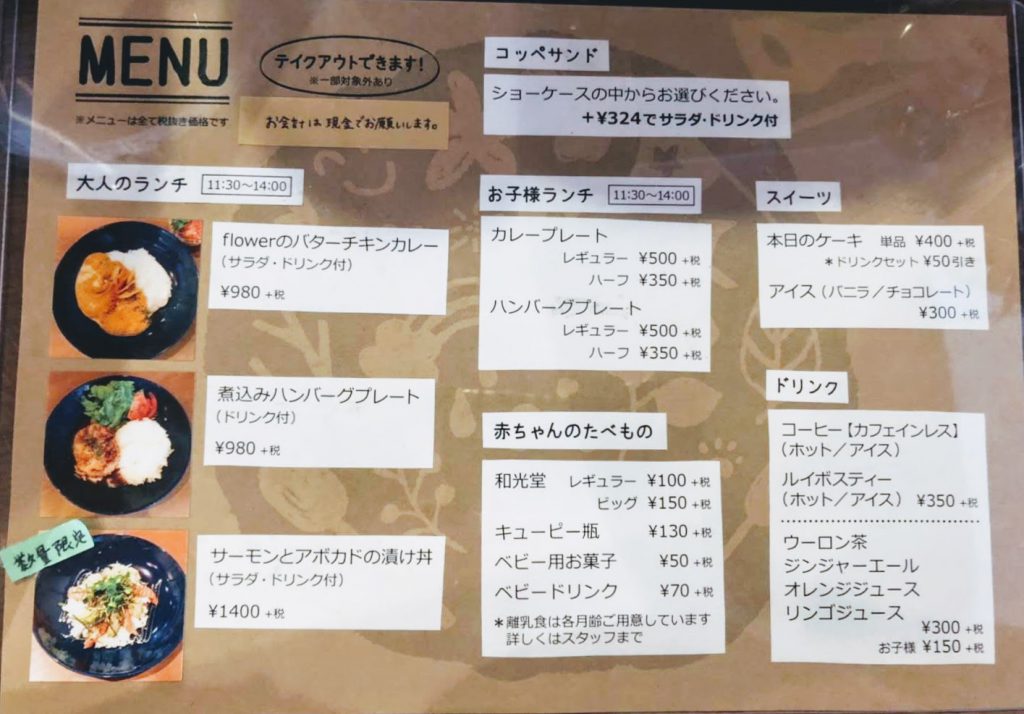 MENU
※メニューは全て税抜き価格です
テイクアウトできます!
※一部対象外あり
お会計は現金でお願いします。
大人のランチ 11:30~14:00
flowerのバターチキンカレー
(サラダ・ドリンク付)
¥980 +税
煮込みハンバーグプレート
(ドリンク付)
¥980 +税
数量限定
サーモンとアボカドの漬け丼
(サラダ・ドリンク付)
¥1400 +税
コッペサンド
ショーケースの中からお選びください。
+¥324でサラダ・ドリンク付
お子様ランチ 11:30~14:00
カレープレート
レギュラー ¥500 +税
ハーフ ¥350 +税
ハンバーグプレート
レギュラー ¥500 +税
ハーフ ¥350 +税
赤ちゃんのたべもの
和光堂 レギュラー ¥100 +税
ビッグ ¥150 +税
キューピー瓶 ¥130 +税
ベビー用お菓子 ¥50 +税
ベビードリンク ¥70 +税
*離乳食は各月齢ご用意しています
詳しくはスタッフまで
スイーツ
本日のケーキ 単品 ¥400 +税
*ドリンクセット ¥50引き
アイス(バニラ/チョコレート)
¥300 +税
ドリンク
コーヒー【カフェインレス】
(ホット/アイス)
ルイボスティー
(ホット/アイス) ¥350 +税
ウーロン茶
ジンジャーエール
オレンジジュース
リンゴジュース
¥300 +税
お子様 ¥150 +税